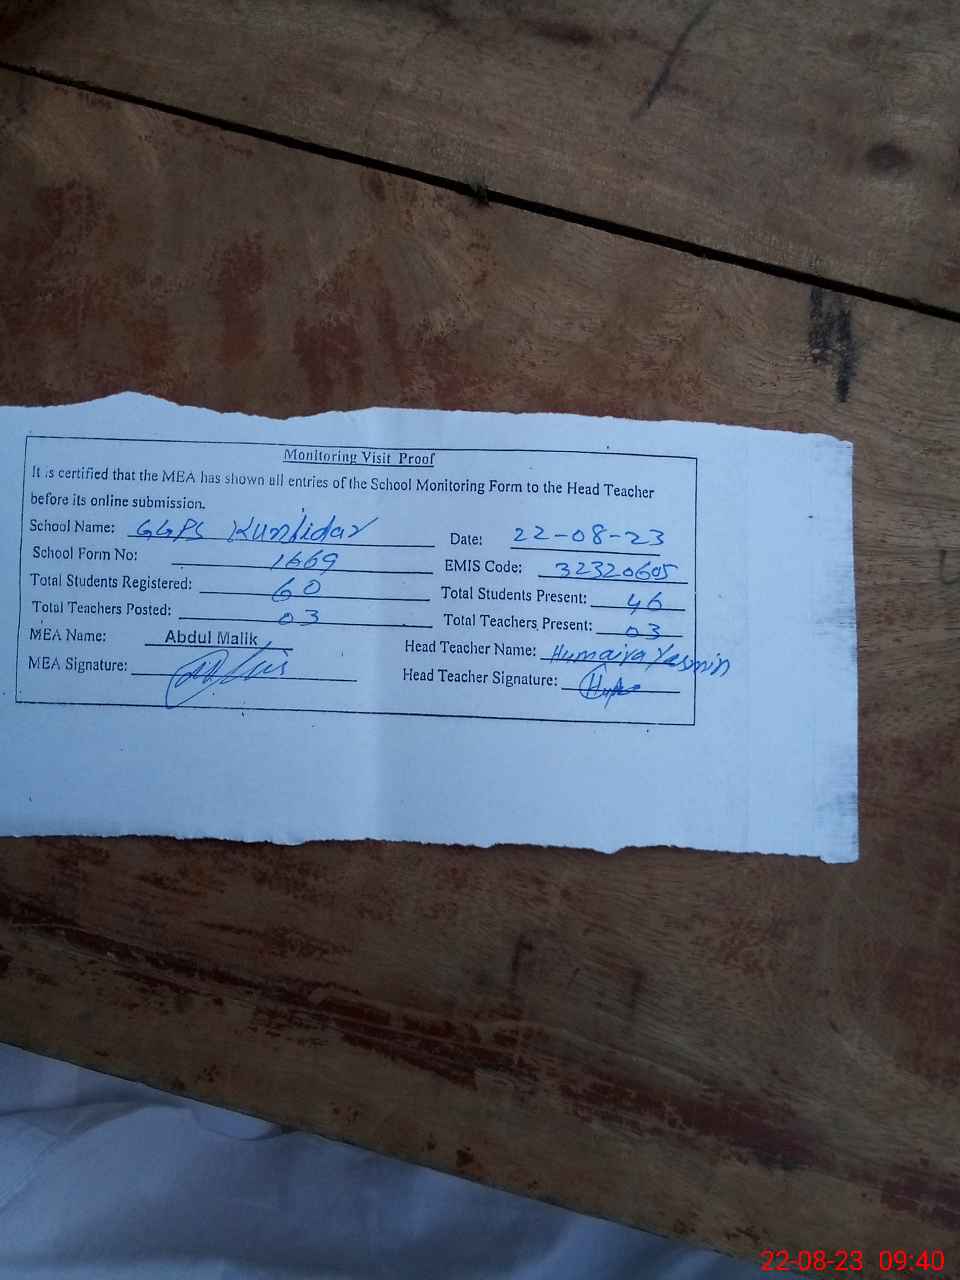 Monitoring Visit Proof
It is certified that the MEA has shown all entries of the School Monitoring Form to the Head Teacher
before its online submission.
School Name: GGPS Date: 22-08-23
School Form No: 1669 EMIS Code: 32320605
Total Students Registered: 60 Total Students Present: 46
Total Teachers Posted: 03 Total Teachers Present: 03
MEA Name: Abdul Malik Head Teacher Name: Humaira Yasmin
MEA Signature: Head Teacher Signature:
22-08-23 09:40